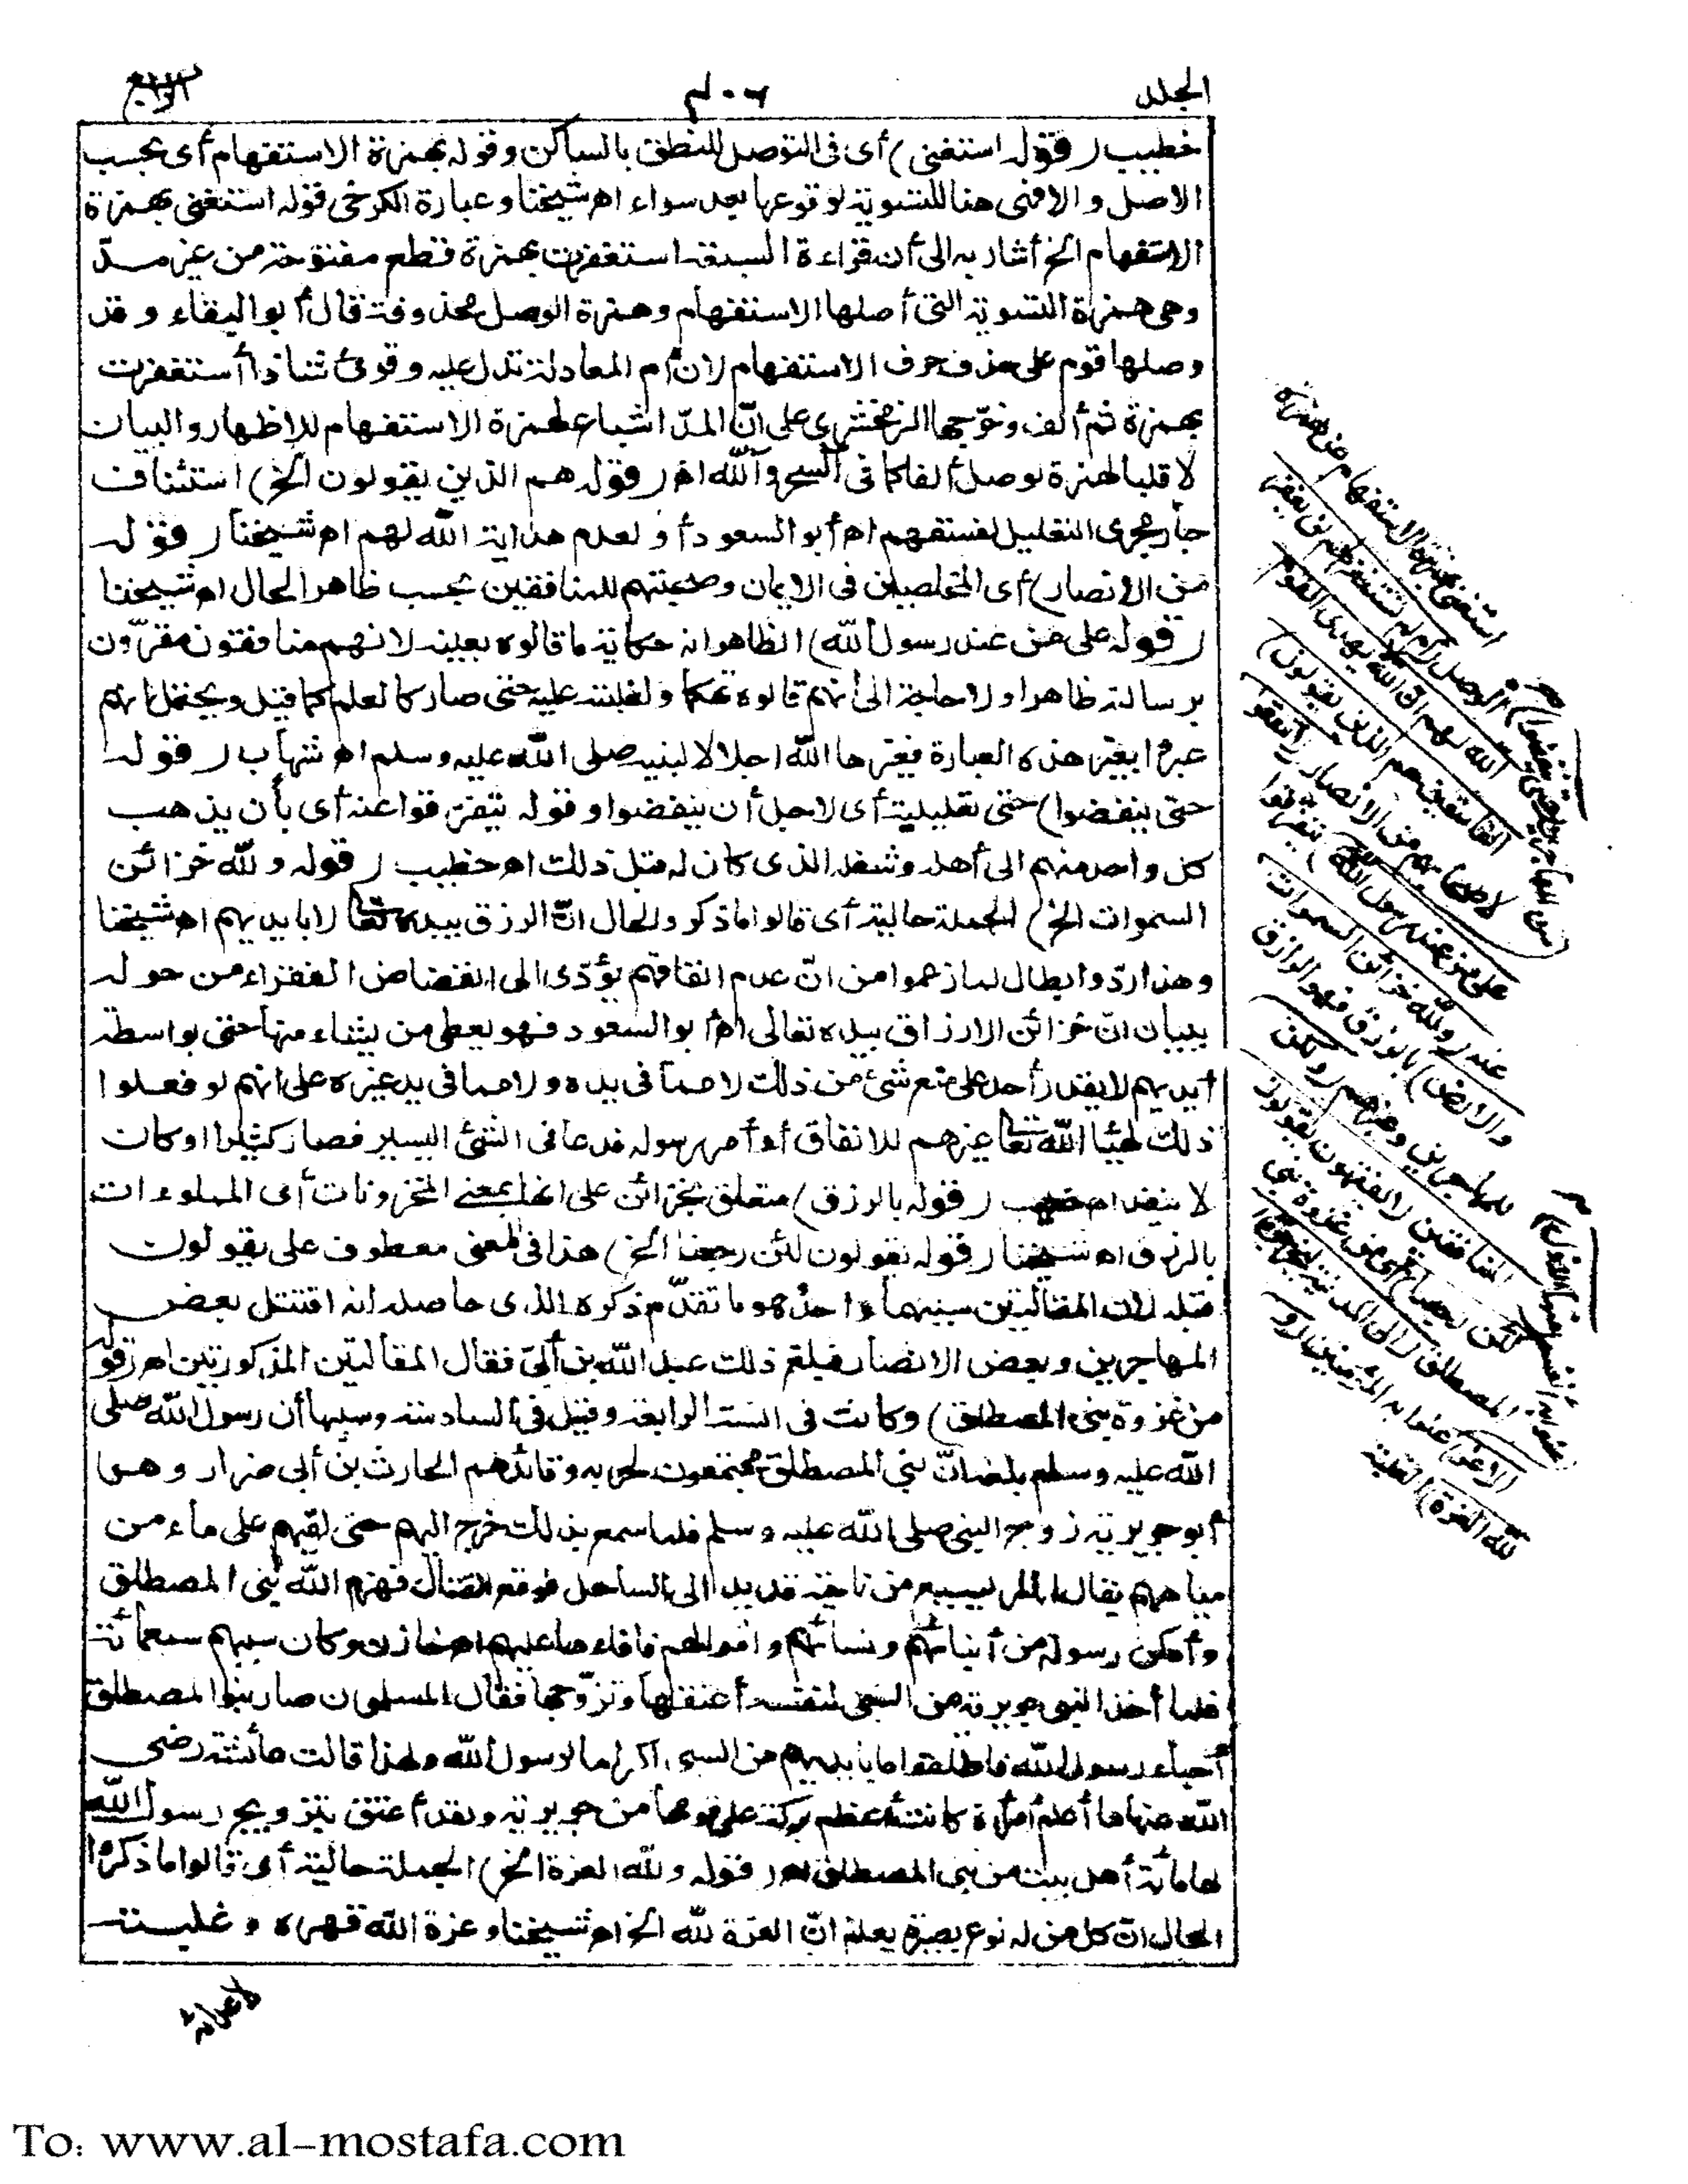 الجلد
٤٠٦
الرابع
خطيب (قوله استغنى) أى فى التوصل للنطق بالساكن وقوله بهمزة الاستفهام أى بحسب
الاصل والافهى هنا للتسوية لوقوعها بعد سواء اه شيخنا وعبارة الكرخى قوله استغنى بهمزة
الاستفهام الخ أشار به الى أن قراءة السبعة استغفرت بهمزة قطع مفتوحة من غير مدّ
وهى همزة التسوية التى أصلها الاستفهام وهمزة الوصل محذوفة قال أبو البقاء وقد
وصلها قوم على حذف حرف الاستفهام لان أم المعادلة تدل عليه وقرئ شاذا آستغفرت
بهمزة ثم ألف ووجهها الزمخشرى على انّ المدّ اشباع لهمزة الاستفهام للاظهار والبيان
لا قلبا لهمزة لوصل ألفا كما فى آلسحر وآلله اه (قوله هم الذين يقولون الخ) استئناف
جار مجرى التعليل لفسقهم اه أبو السعود أو لعدم هداية الله لهم اه شيخنا (قوله
من الانصار) أى المخلصين فى الايمان وصحبتهم للمنافقين بحسب ظاهر الحال اه شيخنا
(قوله على من عند رسول الله) الظاهر انه حكاية ما قالوه بعينه لانهم منافقون مقرّون
برسالته ظاهرا ولا حاجة الى أنهم قالوه تهكما ولغلبته عليه حتى صار كالعلم كما قيل ويحتمل انهم
عبروا بغير هذه العبارة فغيرها الله اجلالا لنبيه صلى الله عليه وسلم اه شهاب (قوله
حتى ينفضوا) حتى تعليلية أى لاجل أن ينفضوا وقوله يتفرقوا عنه أى بأن يذهب
كل واحد منهم الى أهله وشغله الذى كان له قبل ذلك اه خطيب (قوله ولله خزائن
السموات الخ) الجملة حالية أى قالوا ما ذكر والحال انّ الرزق بيده تعالى لا بايديهم اه شيخنا
وهذا ردّ وابطال لما زعموا من انّ عدم انفاقهم يؤدّى الى انفضاض الفقراء من حوله
ببيان انّ خزائن الارزاق بيده تعالى اه أبو السعود فهو يعطى من يشاء منها حتى بواسطة
أيديهم لا يقدر أحد على منع شئ من ذلك لا مما فى يده ولا مما فى يد غيره على انهم لو فعلوا
ذلك لهيأ الله تعالى غيرهم للانفاق أو أمر رسوله فدعا فى الشئ اليسير فصار كثيرا او كان
لا ينفد اه خطيب (قوله بالرزق) متعلق بخزائن على انها بمعنى المخزونات أى المملوءات
بالرزق اه شيخنا (قوله يقولون لئن رجعنا الخ) هذا فى المعنى معطوف على يقولون
قبله لان المقالتين سببهما واحد وهو ما تقدّم ذكره الذى حاصله انه اقتتل بعض
المهاجرين وبعض الانصار فبلغ ذلك عبد الله بن أبىّ فقال المقالتين المذكورتين اه (قوله
من غزوة بنى المصطلق) وكانت فى السنة الرابعة وقيل فى السادسة وسببها أن رسول الله صلى
الله عليه وسلم بلغه انّ بنى المصطلق مجتمعون لحربه وقائدهم الحارث بن أبى ضرار وهو
أبو جويرية زوج النبى صلى الله عليه وسلم فلما سمع بذلك خرج اليهم حتى لقيهم على ماء من
مياههم يقال له المريسيع من ناحية قديد الى الساحل فوقع القتال فهزم الله بنى المصطلق
وأمكن رسوله من أبنائهم ونسائهم وأموالهم فافاءها عليهم اه خازن وكان سبيهم سبعمائة
فلما أخذ النبى جويرية من السبى لنفسه أعتقها وتزوجها فقال المسلمون صار بنو المصطلق
أحماء رسول الله فاطلقوا ما بايديهم من السبى اكراما لرسول الله ولهذا قالت عائشة رضى
الله عنها ما أعلم امرأة كانت أعظم بركة على قومها من جويرية ولقد أعتق بتزويج رسول الله
لها مائة أهل بيت من بنى المصطلق اه (قوله ولله العزة الخ) الجملة حالية أى قالوا ما ذكر و
الحال ان كل من له نوع بصيرة يعلم انّ العزة لله الخ اه شيخنا وعزة الله قهره وغلبته
استغنى بهمزة الاستفهام عن همزة
الوصل (أم لم تستغفر لهم لن يغفر
الله لهم ان الله لا يهدى القوم
الفاسقين هم الذين يقولون)
لاصحابهم من الانصار (لا تنفقوا
على من عند رسول الله حتى ينفضوا) يتفرقوا
عنه (ولله خزائن السموات
والارض) بالرزق فهو الرازق
للمهاجرين وغيرهم (ولكن
المنافقين لا يفقهون يقولون
لئن رجعنا) أى من غزوة بنى
المصطلق (الى المدينة ليخرجن
الاعز) عنوا به أنفسهم (منها الاذل) عنوا به المؤمنين (و
لله العزة) الغلبة
To: www.al-mostafa.com